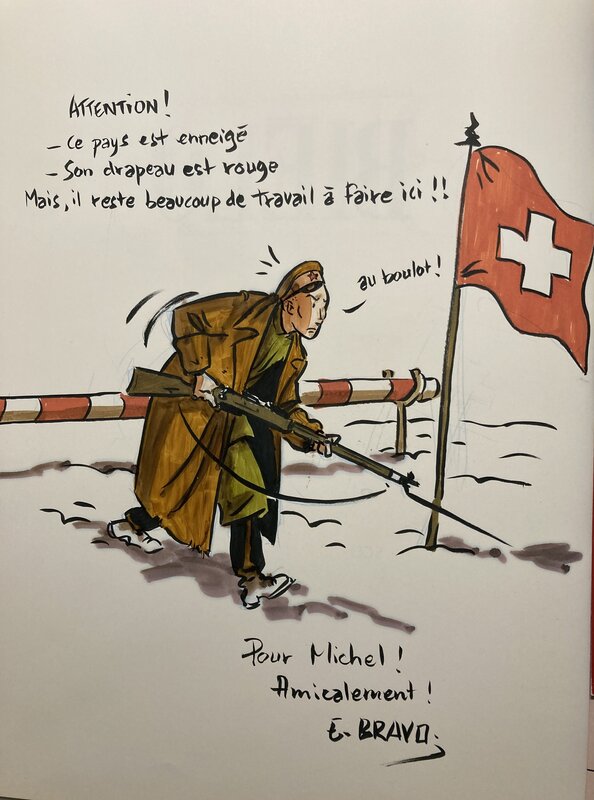 ATTENTION!
- Ce pays est enneigé
- Son drapeau est rouge
Mais, il reste beaucoup de travail à faire ici !!
au boulot!
Pour Michel !
Amicalement !
E. BRAVO.